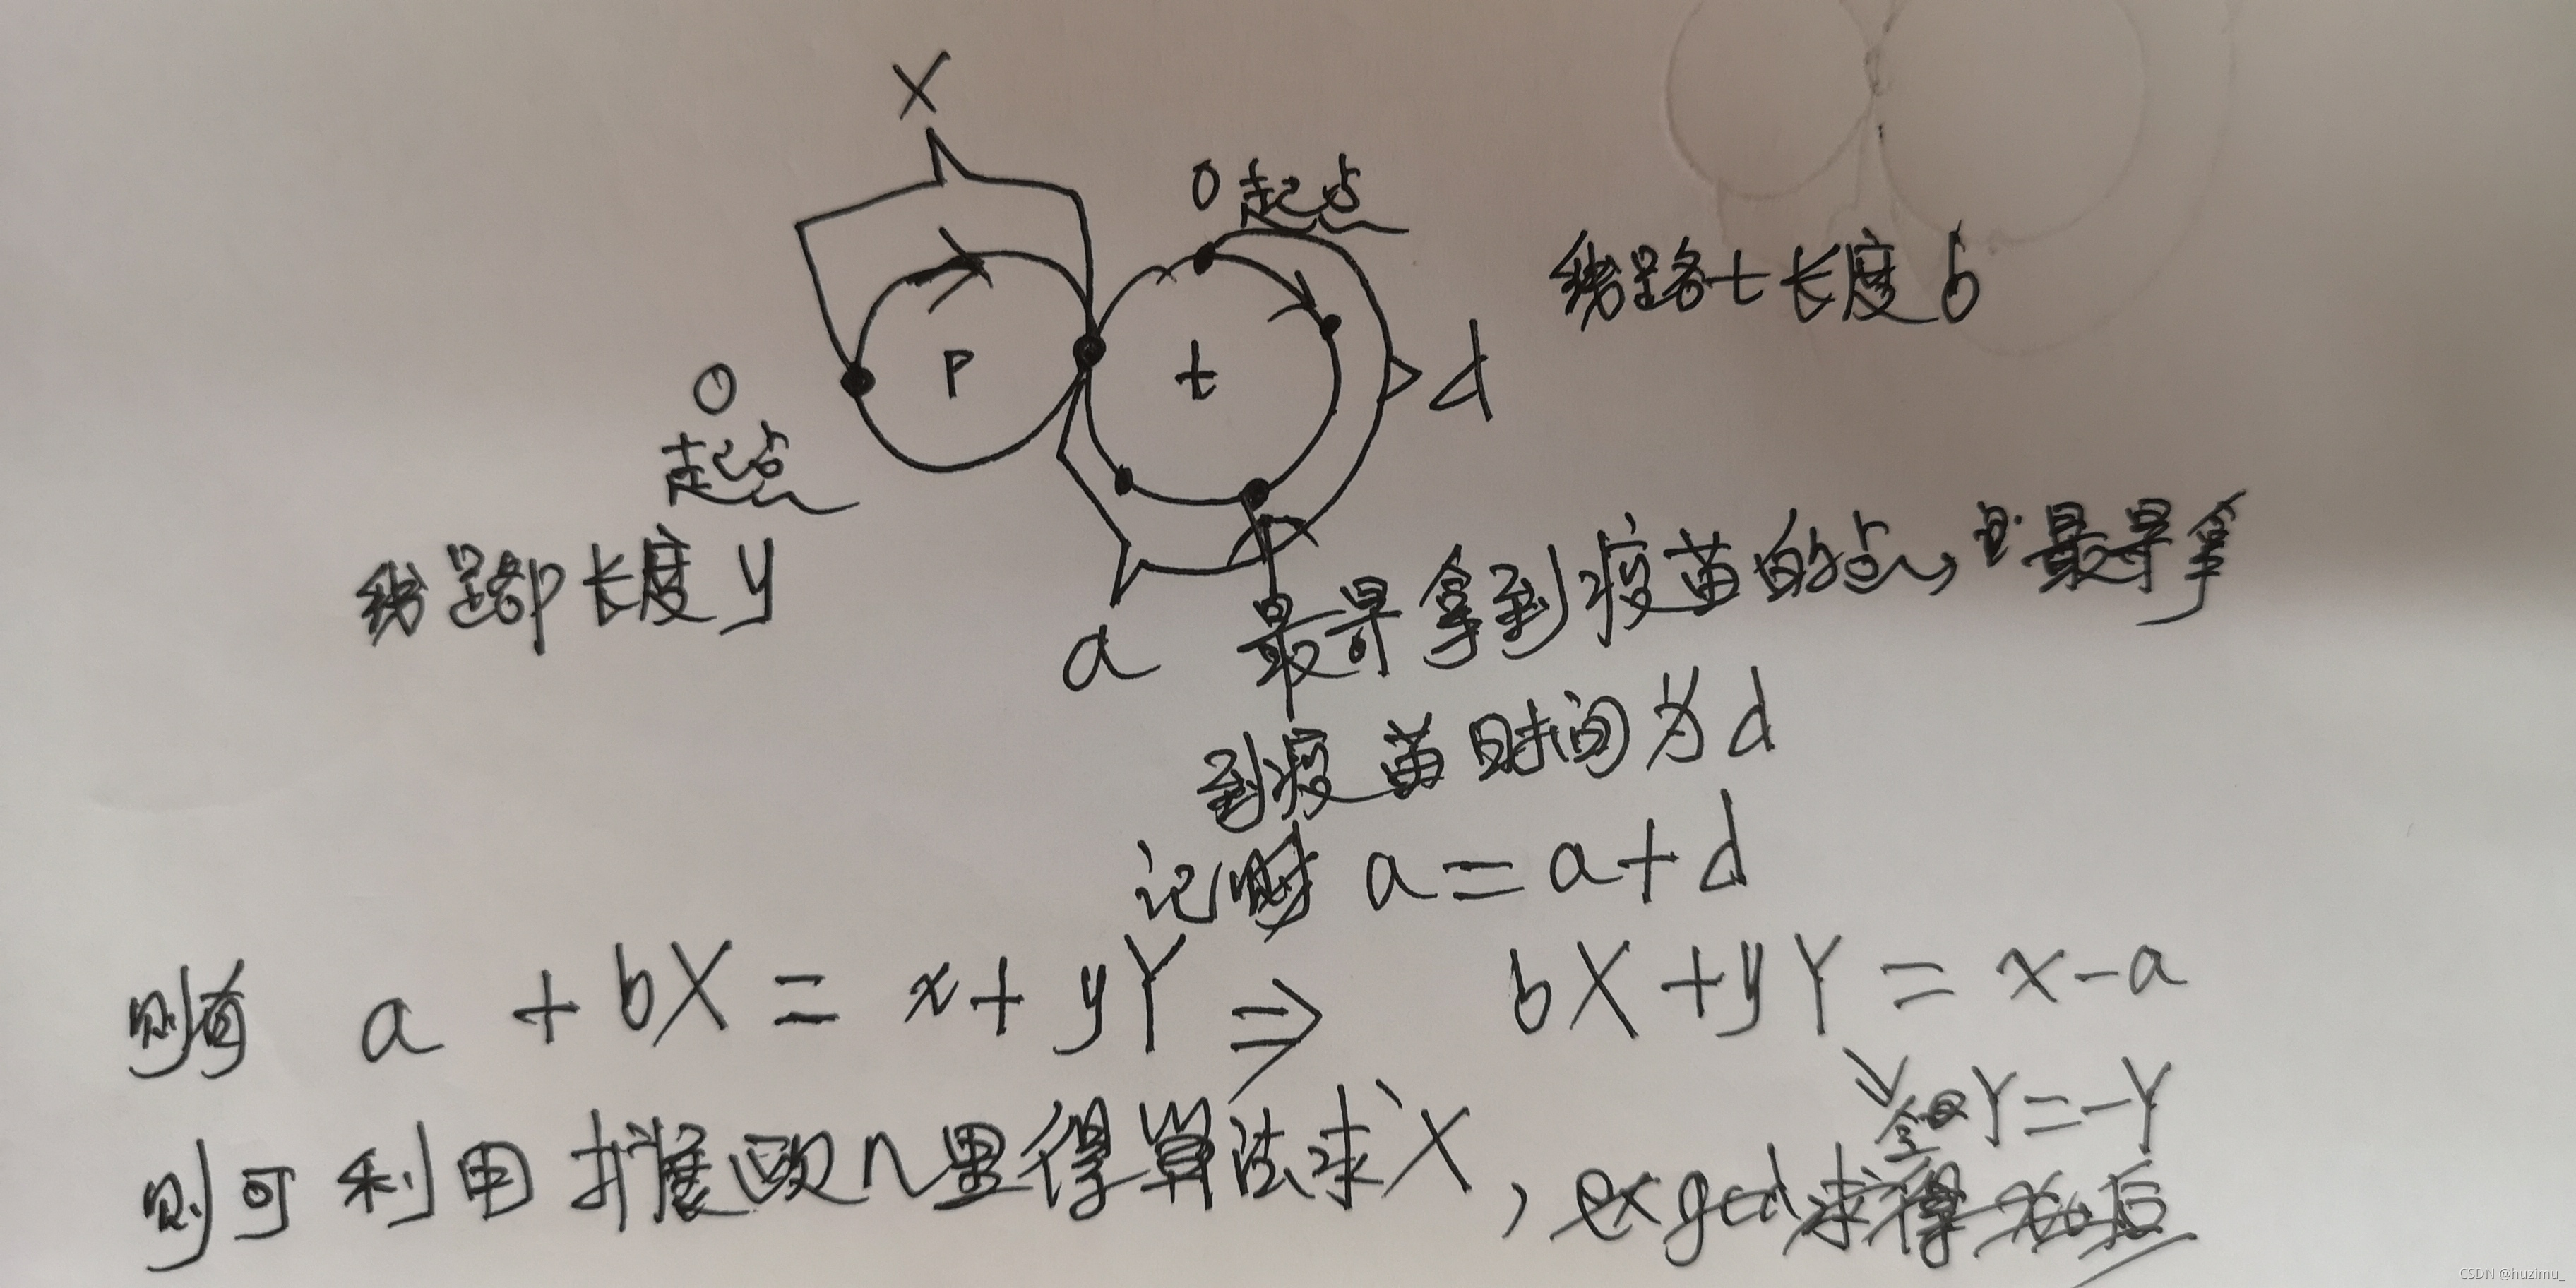 X
0 起点
线路t长度 b
P
t
d
0
起点
线路p长度 y
a
最早拿到疫苗的点, 且最早拿
到疫苗时间为 d
记 a = a + d
则有 a + bX = x + yY ⇒ bX + yY = x - a
令 Y = -Y
则可利用扩展欧几里得算法求X, exgcd求得
CSDN @huzimu_